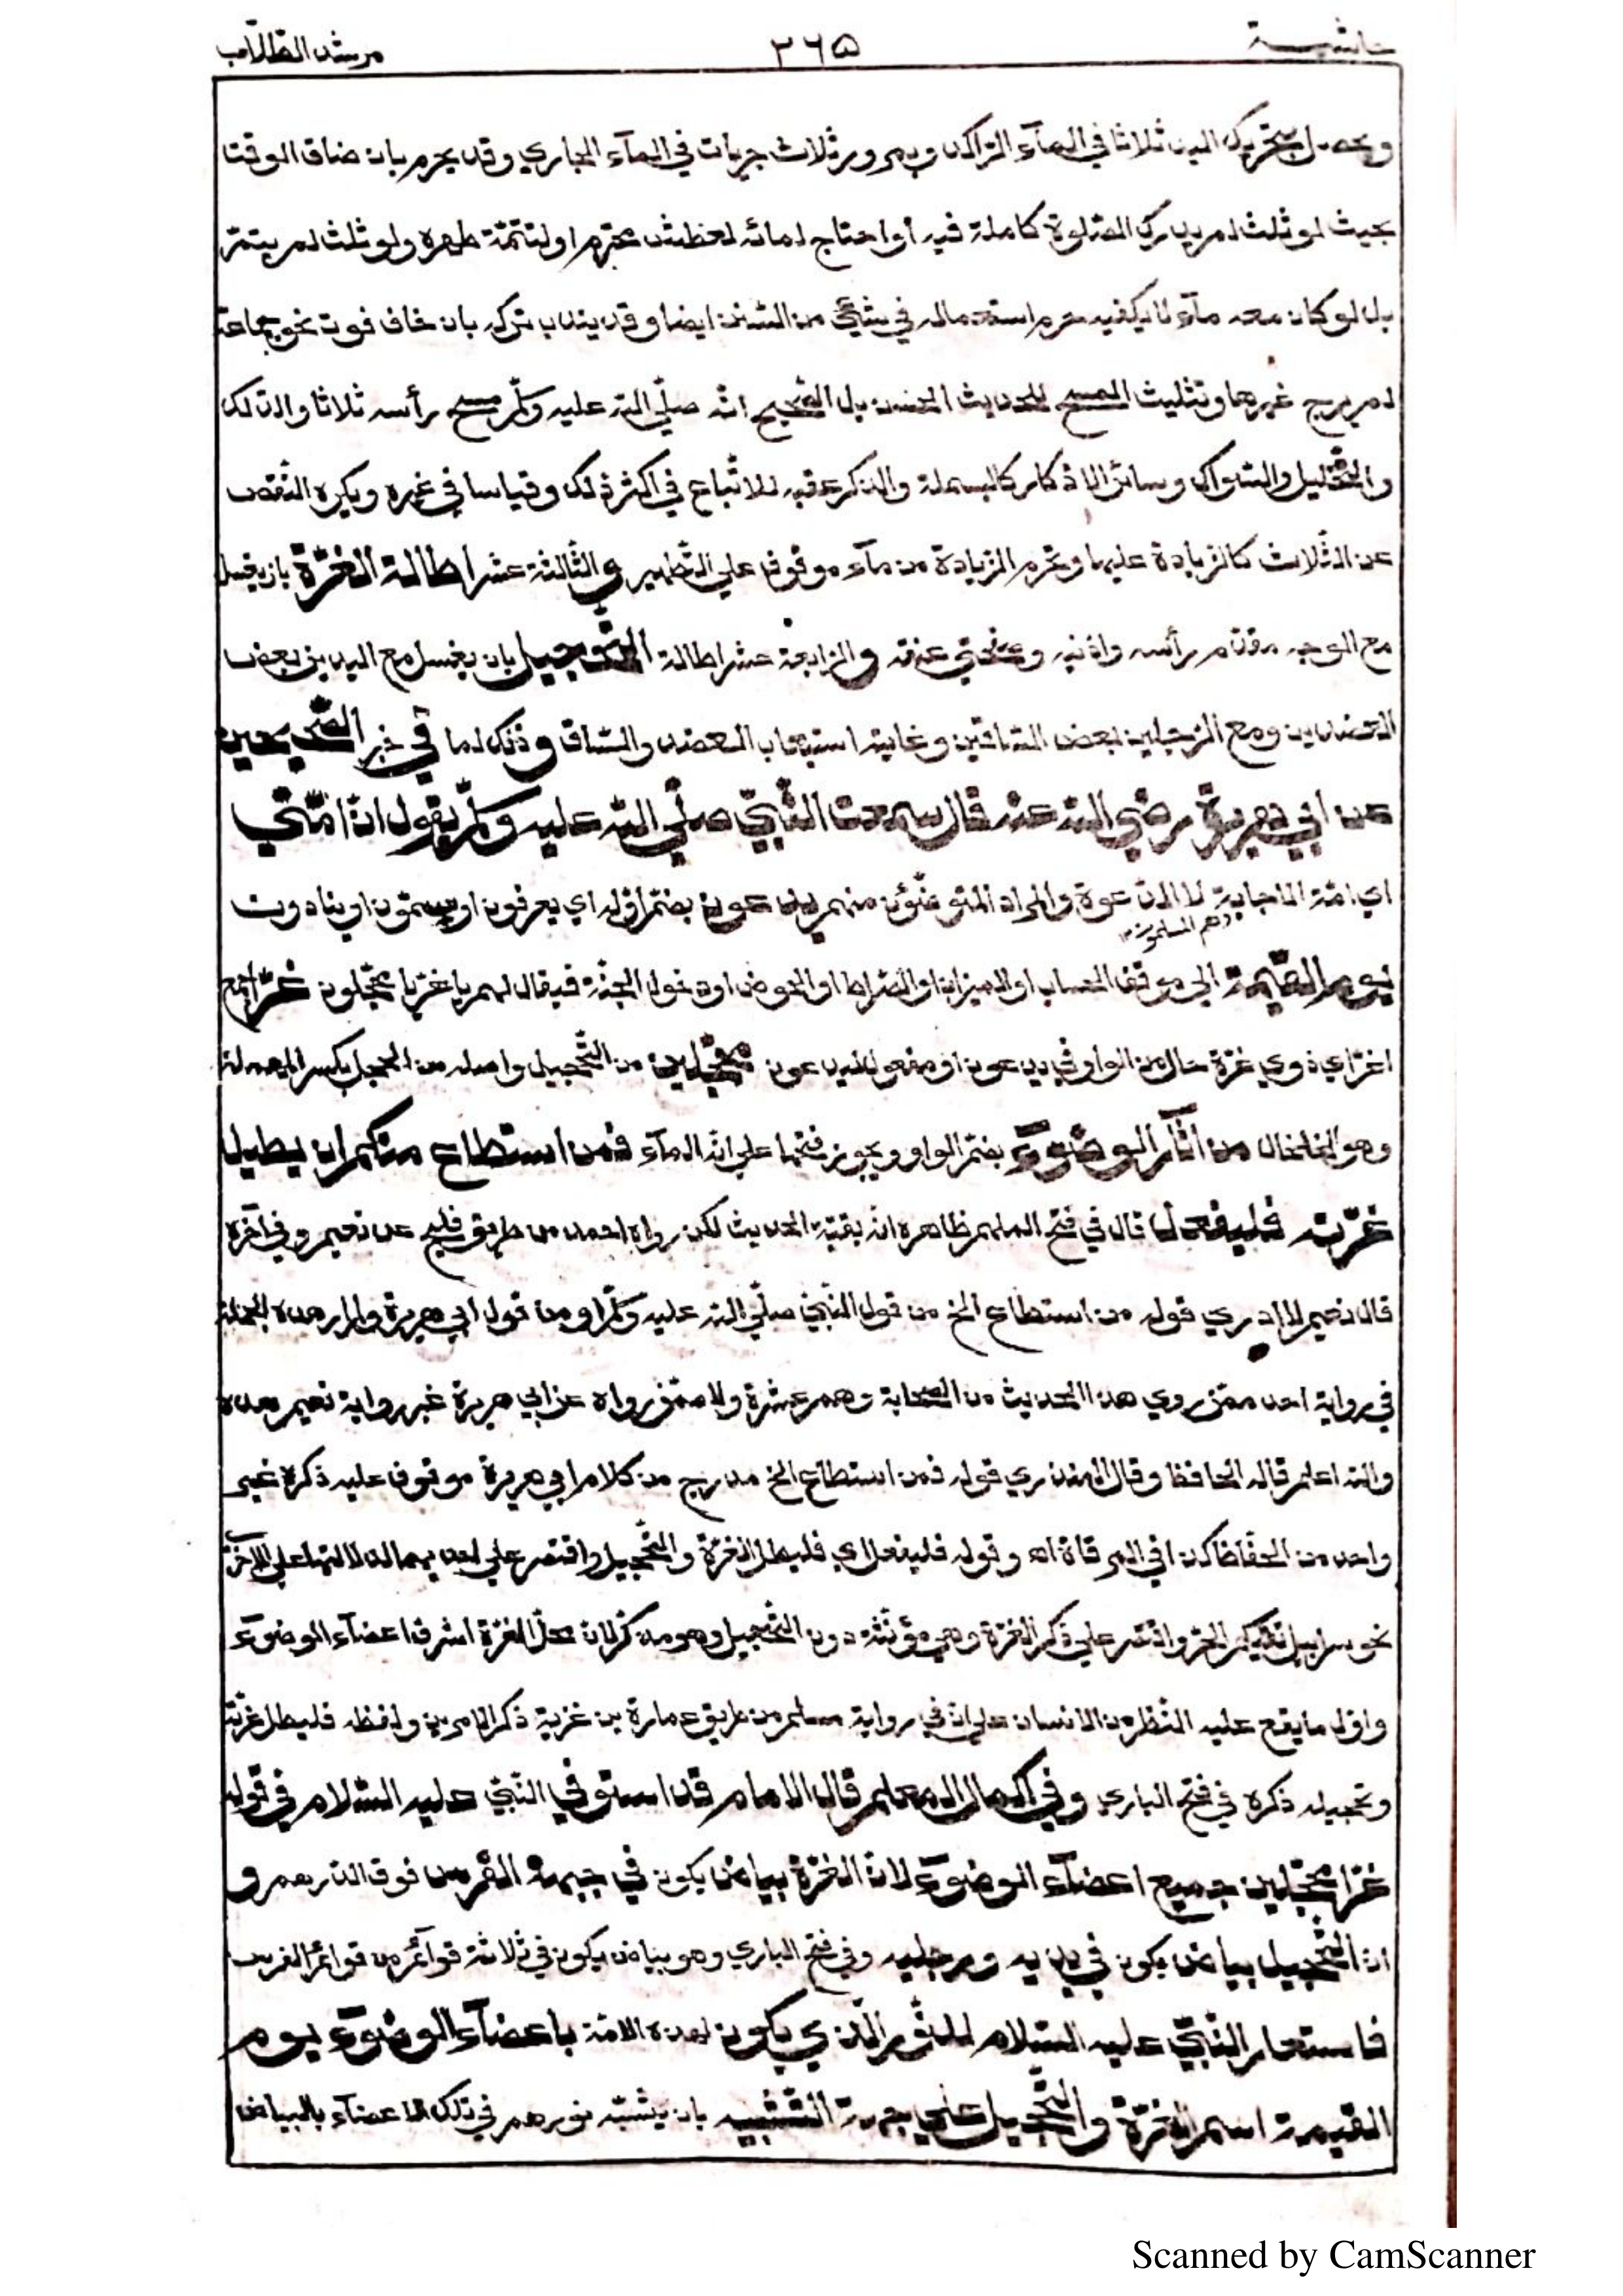 حاشية ٣٦٥ مرشد الطلاب
ويحصل بتحريك اليد ثلاثا في المآء الراكد وبمرور ثلاث جريات في المآء الجاري وقد يحرم بان ضاق الوقت
بحيث لو ثلث لم يدرك الصلوة كاملة فيه أو احتاج لمائه لعطش محترم او لتتمّة طهره ولو ثلث لم يتمّ
بل لو كان معه مآء لا يكفيه حرم استعماله في شيئ من السّنن ايضا وقد يندب تركه بان خاف فوت نحو جماعة
لم يرج غيرها وتثليث المسح للحديث الحسن بل الصّحيح انّه صلّي اللّه عليه وسلّم مسح رأسه ثلاثا والدّلك
والتّخليل والسّواك وسائر الاذكار كالبسملة والذّكر عقبه للاتّباع في اكثر ذلك وقياسا في غيره ويكره النّقص
عن الثّلاث كالزّيادة عليها وتحرم الزّيادة من مآء موقوف علي التّطهير والثّالثة عشر اطالة الغرّة بان يغسل
مع الوجه مقدّم رأسه واذنيه وصفحتي عنقه والرّابعة عشر اطالة التّحجيل بان يغسل مع اليدين بعض
العضدين ومع الرّجلين بعض السّاقين وغايته استيعاب العضد والسّاق وذلك لما في خبر الصّحيحين
عن ابي هريرة رضي اللّه عنه قال سمعت النّبيّ صلّي اللّه عليه وسلّم يقول انّ امّتي
اي امّة الاجابة لا الدّعوة والمراد المتوضّؤن منهم يدعون بضمّ اوّله اي يعرفون او يسمّون او ينادون
وهم المسلمون
يوم القيٰمة الي موقف الحساب او الميزان او الصّراط او الحوض او دخول الجنّة فيقال لهم يا غرّ يا محجّلون غرّا جمع
اغرّ اي ذوي غرّة حال من الواو في يدعون او مفعول ليدعون محجّلين من التّحجيل واصله من الحجل بكسر المهملة
وهو الخلخال من اٰثار الوضوٓء بضمّ الواو ويجوز فتحها علي انّه المآء فمن استطاع منكم ان يطيل
غرّته فليفعل قال في فتح الملهم ظاهره انّه بقيّة الحديث لكن رواه احمد من طريق فليح عن نعيم وفي آخره
قال نعيم لا ادري قوله من استطاع الخ من قول النّبيّ صلّي اللّه عليه وسلّم او من قول ابي هريرة ولم ار هذه الجملة
في رواية احد ممّن روي هذا الحديث من الصّحابة وهم عشرة ولا ممّن رواه عن ابي هريرة غير رواية نعيم هذه
واللّه اعلم قاله الحافظ وقال المنذري قوله فمن استطاع الخ مدرج من كلام ابي هريرة موقوف عليه ذكره غير
واحد من الحفّاظ كذا في المرقاة اه وقوله فليفعل اي فليطل الغرّة والتّحجيل واقتصر علي احديهما لدلالتها علي الاخري
نحو سرابيل تقيكم الحرّ واقتصر علي ذكر الغرّة وهي مؤنّثة دون التّحجيل وهو مذكّر لانّ محلّ الغرّة اشرف اعضآء الوضوٓء
واوّل ما يقع عليه النّظر من الانسان علي انّ في رواية مسلم من طريق عمارة بن غزية ذكر الامرين ولفظه فليطل غرّته
وتحجيله ذكره في فتح الباري وفي اكمال المعلم قال الامام قد استوفي النّبيّ عليه السّلام في قوله
غرّا محجّلين جميع اعضآء الوضوٓء لانّ الغرّة بياض يكون في جبهة الفرس فوق الدّرهم و
انّ التّحجيل بياض يكون في يديه ورجليه وفي فتح الباري وهو بياض يكون في ثلاثة قوآئم من قوآئم الفرس
فاستعار النّبيّ عليه السّلام للنّور الّذي يكون لهذه الامّة باعضآء الوضوٓء يوم
القيٰمة اسم الغرّة والتّحجيل علي جهة التّشبيه بان يشبّه نورهم في تلك الاعضآء بالبياض
Scanned by CamScanner